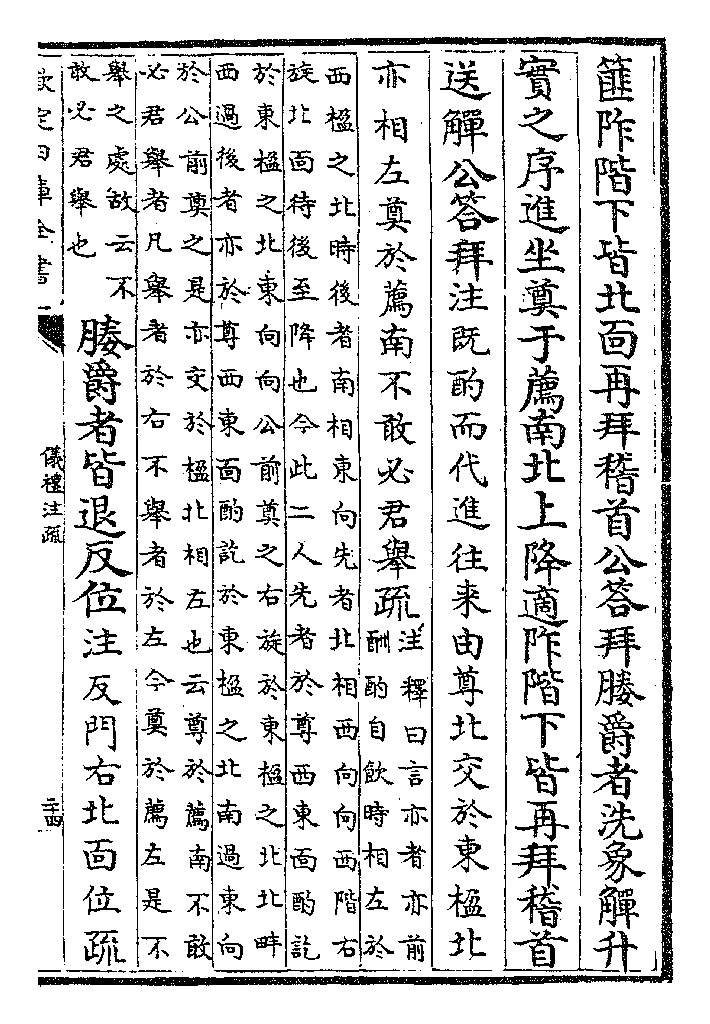 篚阼階下皆北面再拜稽首公荅拜媵爵者洗象觶升
實之序進坐奠于薦南北上降適阼階下皆再拜稽首
送觶公荅拜注既酌而代進往来由尊北交於東楹北
亦相左奠於薦南不敢必君舉疏
注釋曰言亦者亦前
酬酌自飲時相左於
西楹之北時後者南相東向先者北相西向向西階右
旋北面待後至降也今此二人先者於尊西東面酌訖
於東楹之北東向向公前奠之右旋於東楹之北北畔
西過後者亦於尊西東面酌訖於東楹之北南過東向
於公前奠之是亦交於楹北相左也云尊於薦南不敢
必君舉者凡舉者於右不舉者於左今奠於薦左是不
舉之處故云不
敢必君舉也
媵爵者皆退反位注反門右北面位疏
欽定四庫全書
儀禮注疏
二十四